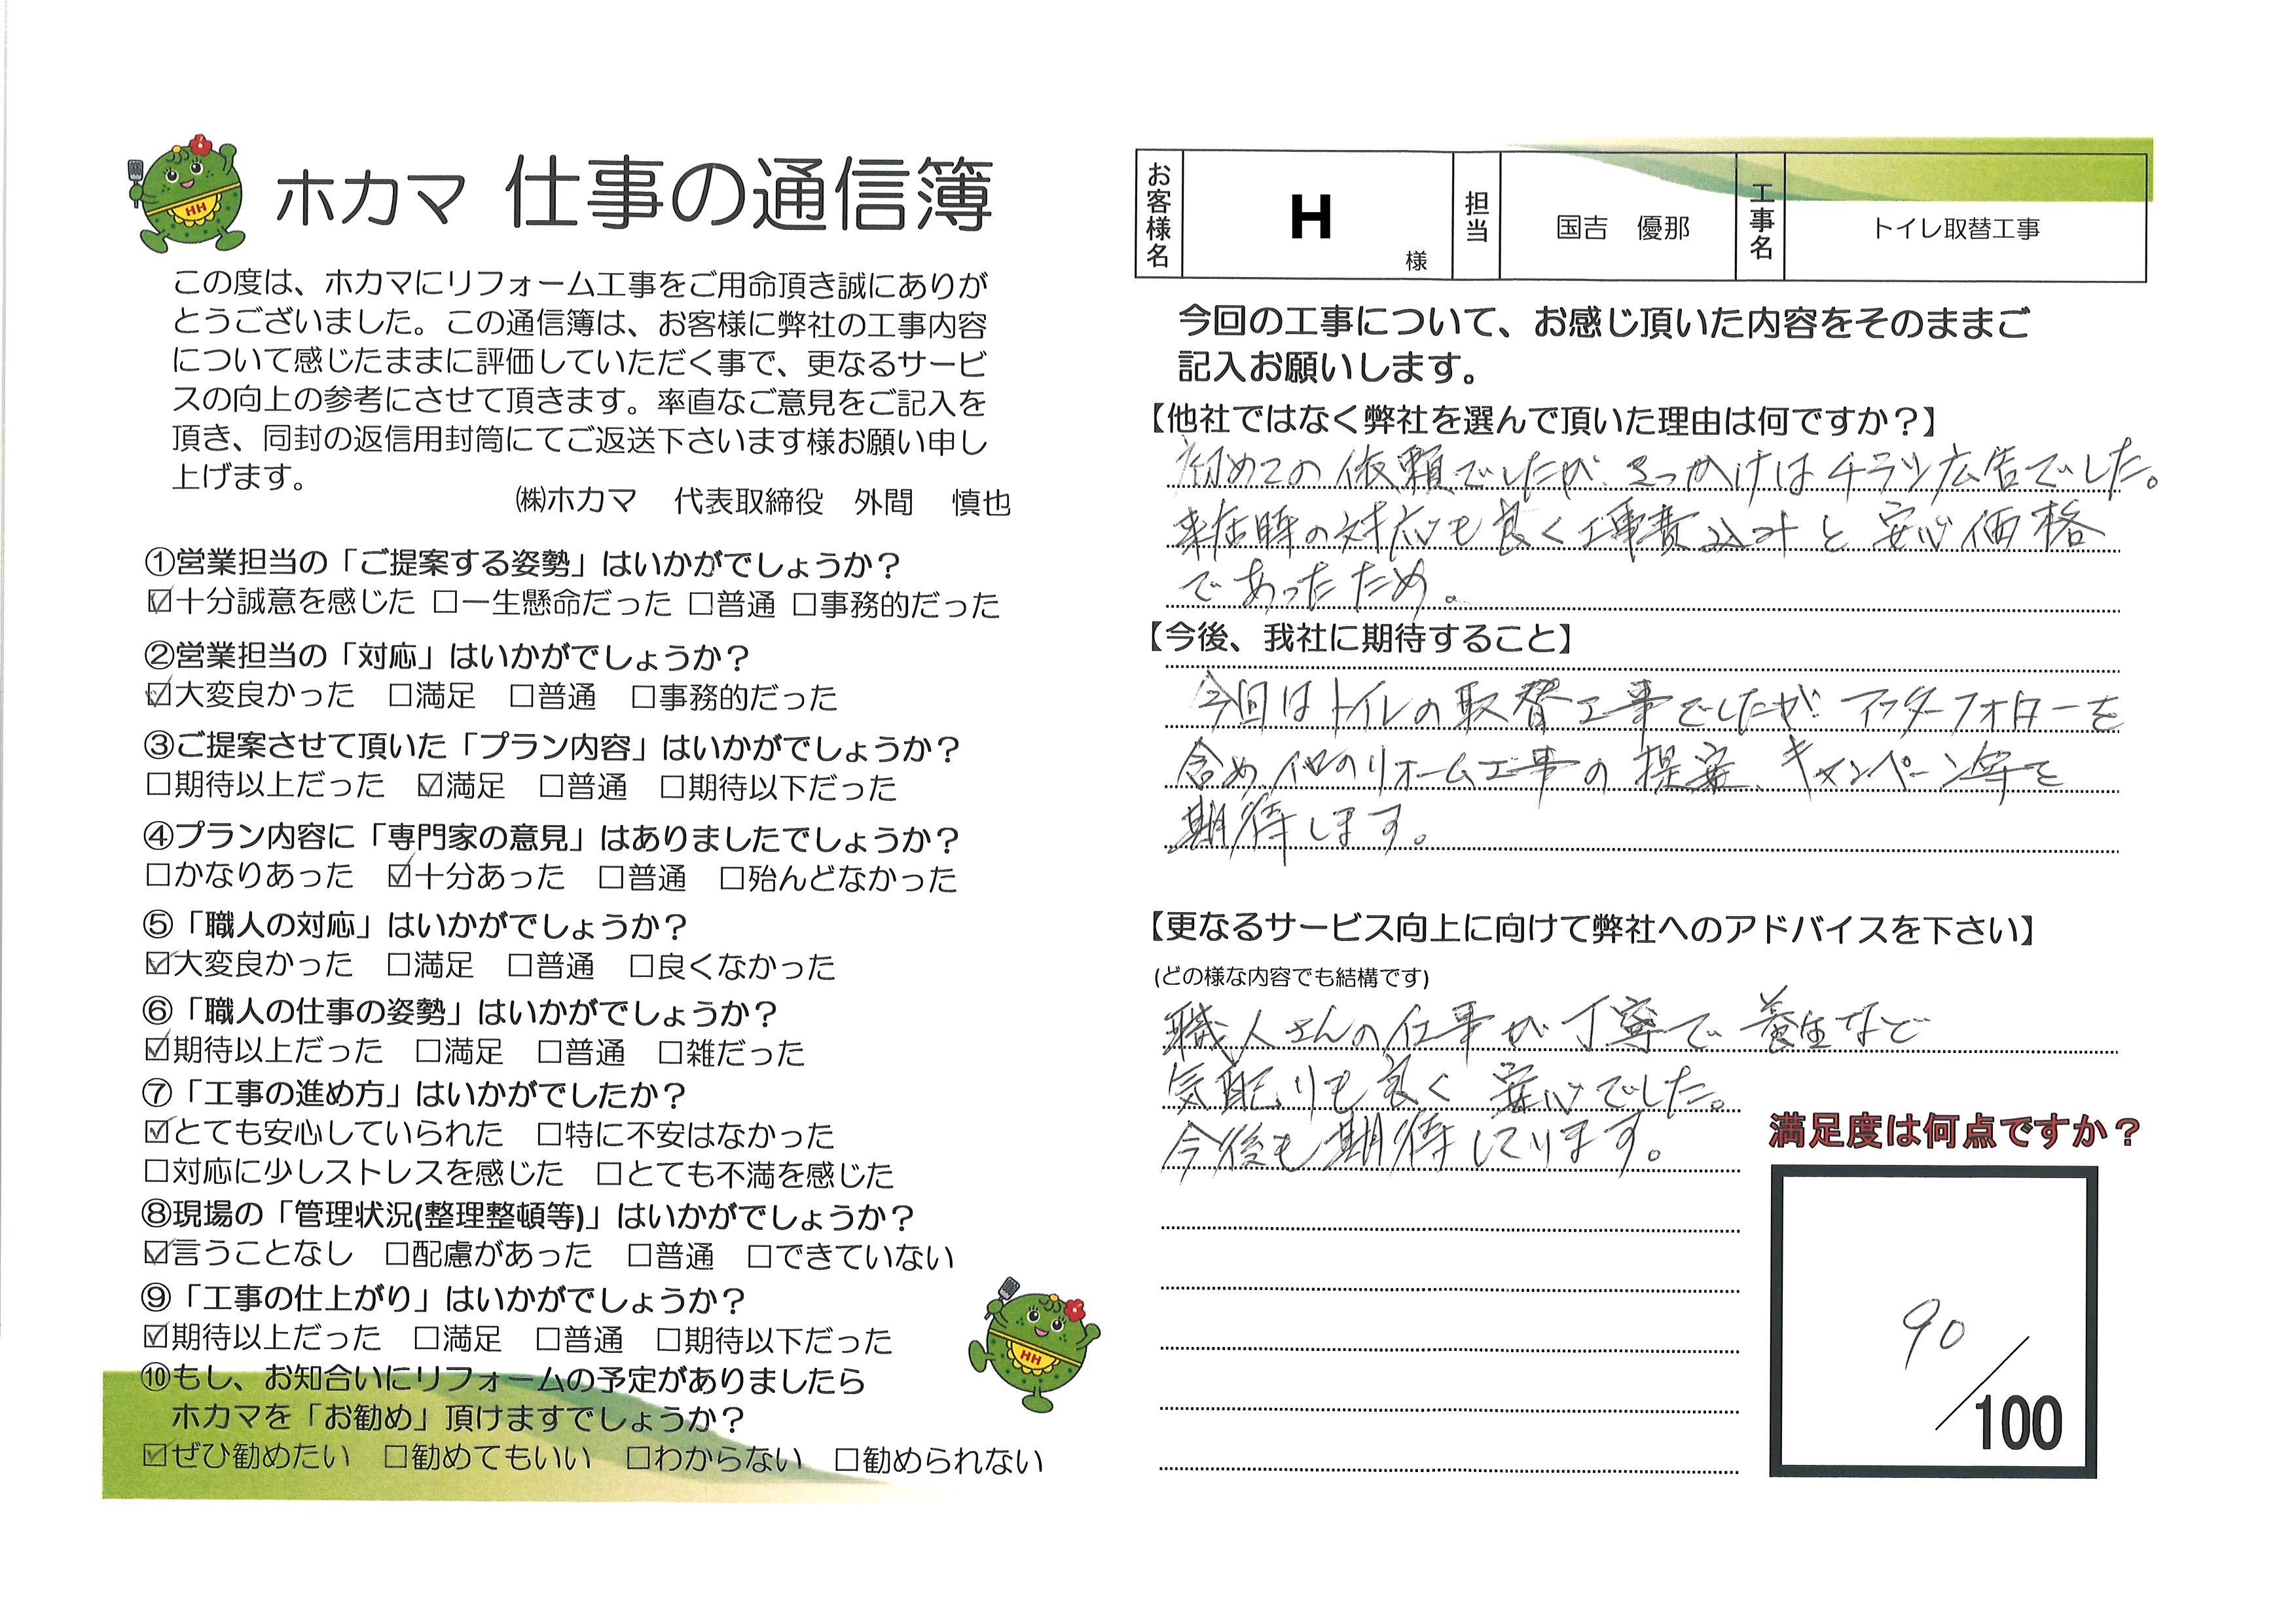 ホカマ 仕事の通信簿
この度は、ホカマにリフォーム工事をご用命頂き誠にありが
とうございました。この通信簿は、お客様に弊社の工事内容
について感じたままに評価していただく事で、更なるサービ
スの向上の参考にさせて頂きます。率直なご意見をご記入を
頂き、同封の返信用封筒にてご返送下さいます様お願い申し
上げます。
㈱ホカマ 代表取締役 外間 慎也
①営業担当の「ご提案する姿勢」はいかがでしょうか？
☑十分誠意を感じた □一生懸命だった □普通 □事務的だった
②営業担当の「対応」はいかがでしょうか？
☑大変良かった □満足 □普通 □事務的だった
③ご提案させて頂いた「プラン内容」はいかがでしょうか？
□期待以上だった ☑満足 □普通 □期待以下だった
④プラン内容に「専門家の意見」はありましたでしょうか？
□かなりあった ☑十分あった □普通 □殆んどなかった
⑤「職人の対応」はいかがでしょうか？
☑大変良かった □満足 □普通 □良くなかった
⑥「職人の仕事の姿勢」はいかがでしょうか？
☑期待以上だった □満足 □普通 □雑だった
⑦「工事の進め方」はいかがでしたか？
☑とても安心していられた □特に不安はなかった
□対応に少しストレスを感じた □とても不満を感じた
⑧現場の「管理状況(整理整頓等)」はいかがでしょうか？
☑言うことなし □配慮があった □普通 □できていない
⑨「工事の仕上がり」はいかがでしょうか？
☑期待以上だった □満足 □普通 □期待以下だった
⑩もし、お知合いにリフォームの予定がありましたら
ホカマを「お勧め」頂けますでしょうか？
☑ぜひ勧めたい □勧めてもいい □わからない □勧められない
HH
HH
お客様名 H 様 担当 国吉 優那 工事名 トイレ取替工事
今回の工事について、お感じ頂いた内容をそのままご
記入お願いします。
【他社ではなく弊社を選んで頂いた理由は何ですか？】
初めての依頼でしたが、きっかけはチラシ広告でした。
来店時の対応も良く工事費込みと安心価格
であったため。
【今後、我社に期待すること】
今回はトイレの取替工事でしたが アフターフォローを
含め、他のリフォーム工事の提案、キャンペーン等を
期待します。
【更なるサービス向上に向けて弊社へのアドバイスを下さい】
(どの様な内容でも結構です)
職人さんの仕事が丁寧で 養生など
気配りも良く 安心でした。
今後も期待しています。
満足度は何点ですか？
90/100